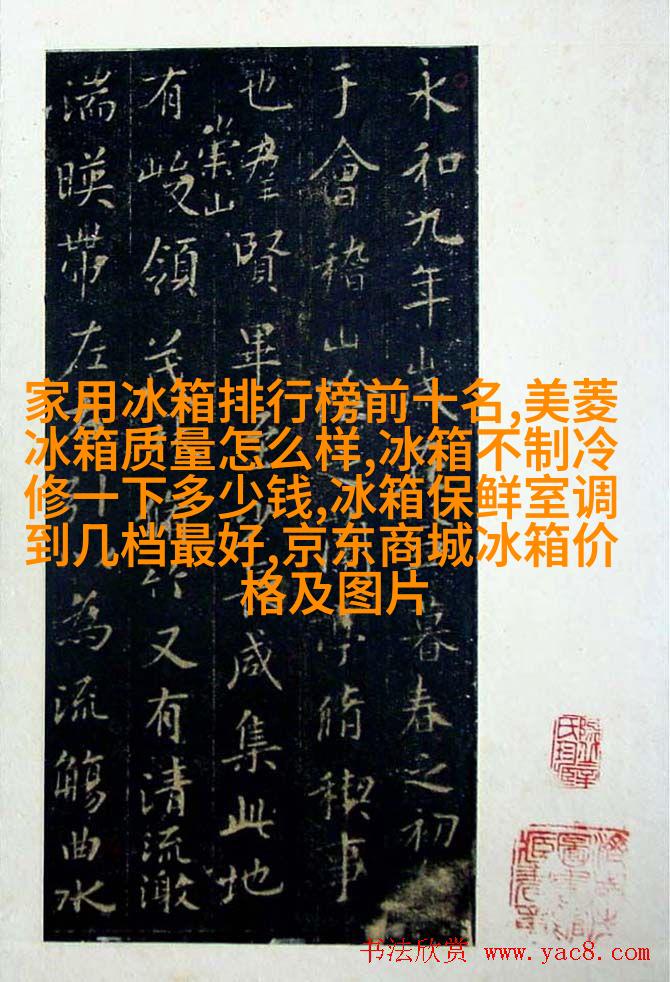 永和九年歲暮春之初
于會稽山脩禊事
也羣賢畢咸集此地
有崇山峻領茂又有清流激
湍暎帶左為流觴曲水
家用冰箱排行榜前十名,美菱
冰箱质量怎么样,冰箱不制冷
修一下多少钱,冰箱保鲜室调
到几档最好,京东商城冰箱价
格及图片
书法欣赏 www.yac8.com